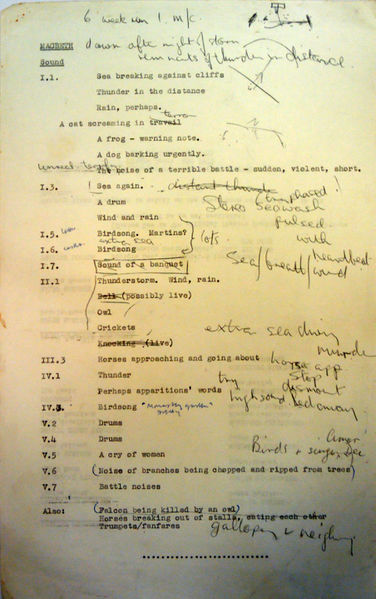 6 week run 1 m/c.
MACBETH dawn after night of storm
remnants of thunder in distance
Sound
I.1. Sea breaking against cliffs
Thunder in the distance
Rain, perhaps.
terror
A cat screaming in travail
A frog - warning note.
A dog barking urgently.
The noise of a terrible battle - sudden, violent, short.
I.3. ! Sea again. distant thunder phased !
A drum Stereo seawash
Wind and rain pulsed
I.5. Birdsong. Martins? lots with
extra sea
I.6. Birdsong Sea/breath/heartbeat
wind
I.7. Sound of a banquet
II.1 Thunderstorm. Wind, rain.
Bell (possibly live)
Owl
Crickets extra sea during
Knocking (live) murder
III.3 Horses approaching and going about horse app
IV.1 Thunder try stop
dismount
Perhaps apparitions' words
IV.3. Birdsong
V.2 Drums
V.4 Drums
Birds +
V.5 A cry of women
V.6 (Noise of branches being chopped and ripped from trees)
V.7 Battle noises
Also: (Falcon being killed by an owl)
Horses breaking out of stalls, eating each other
Trumpets/fanfares galloping & neighing